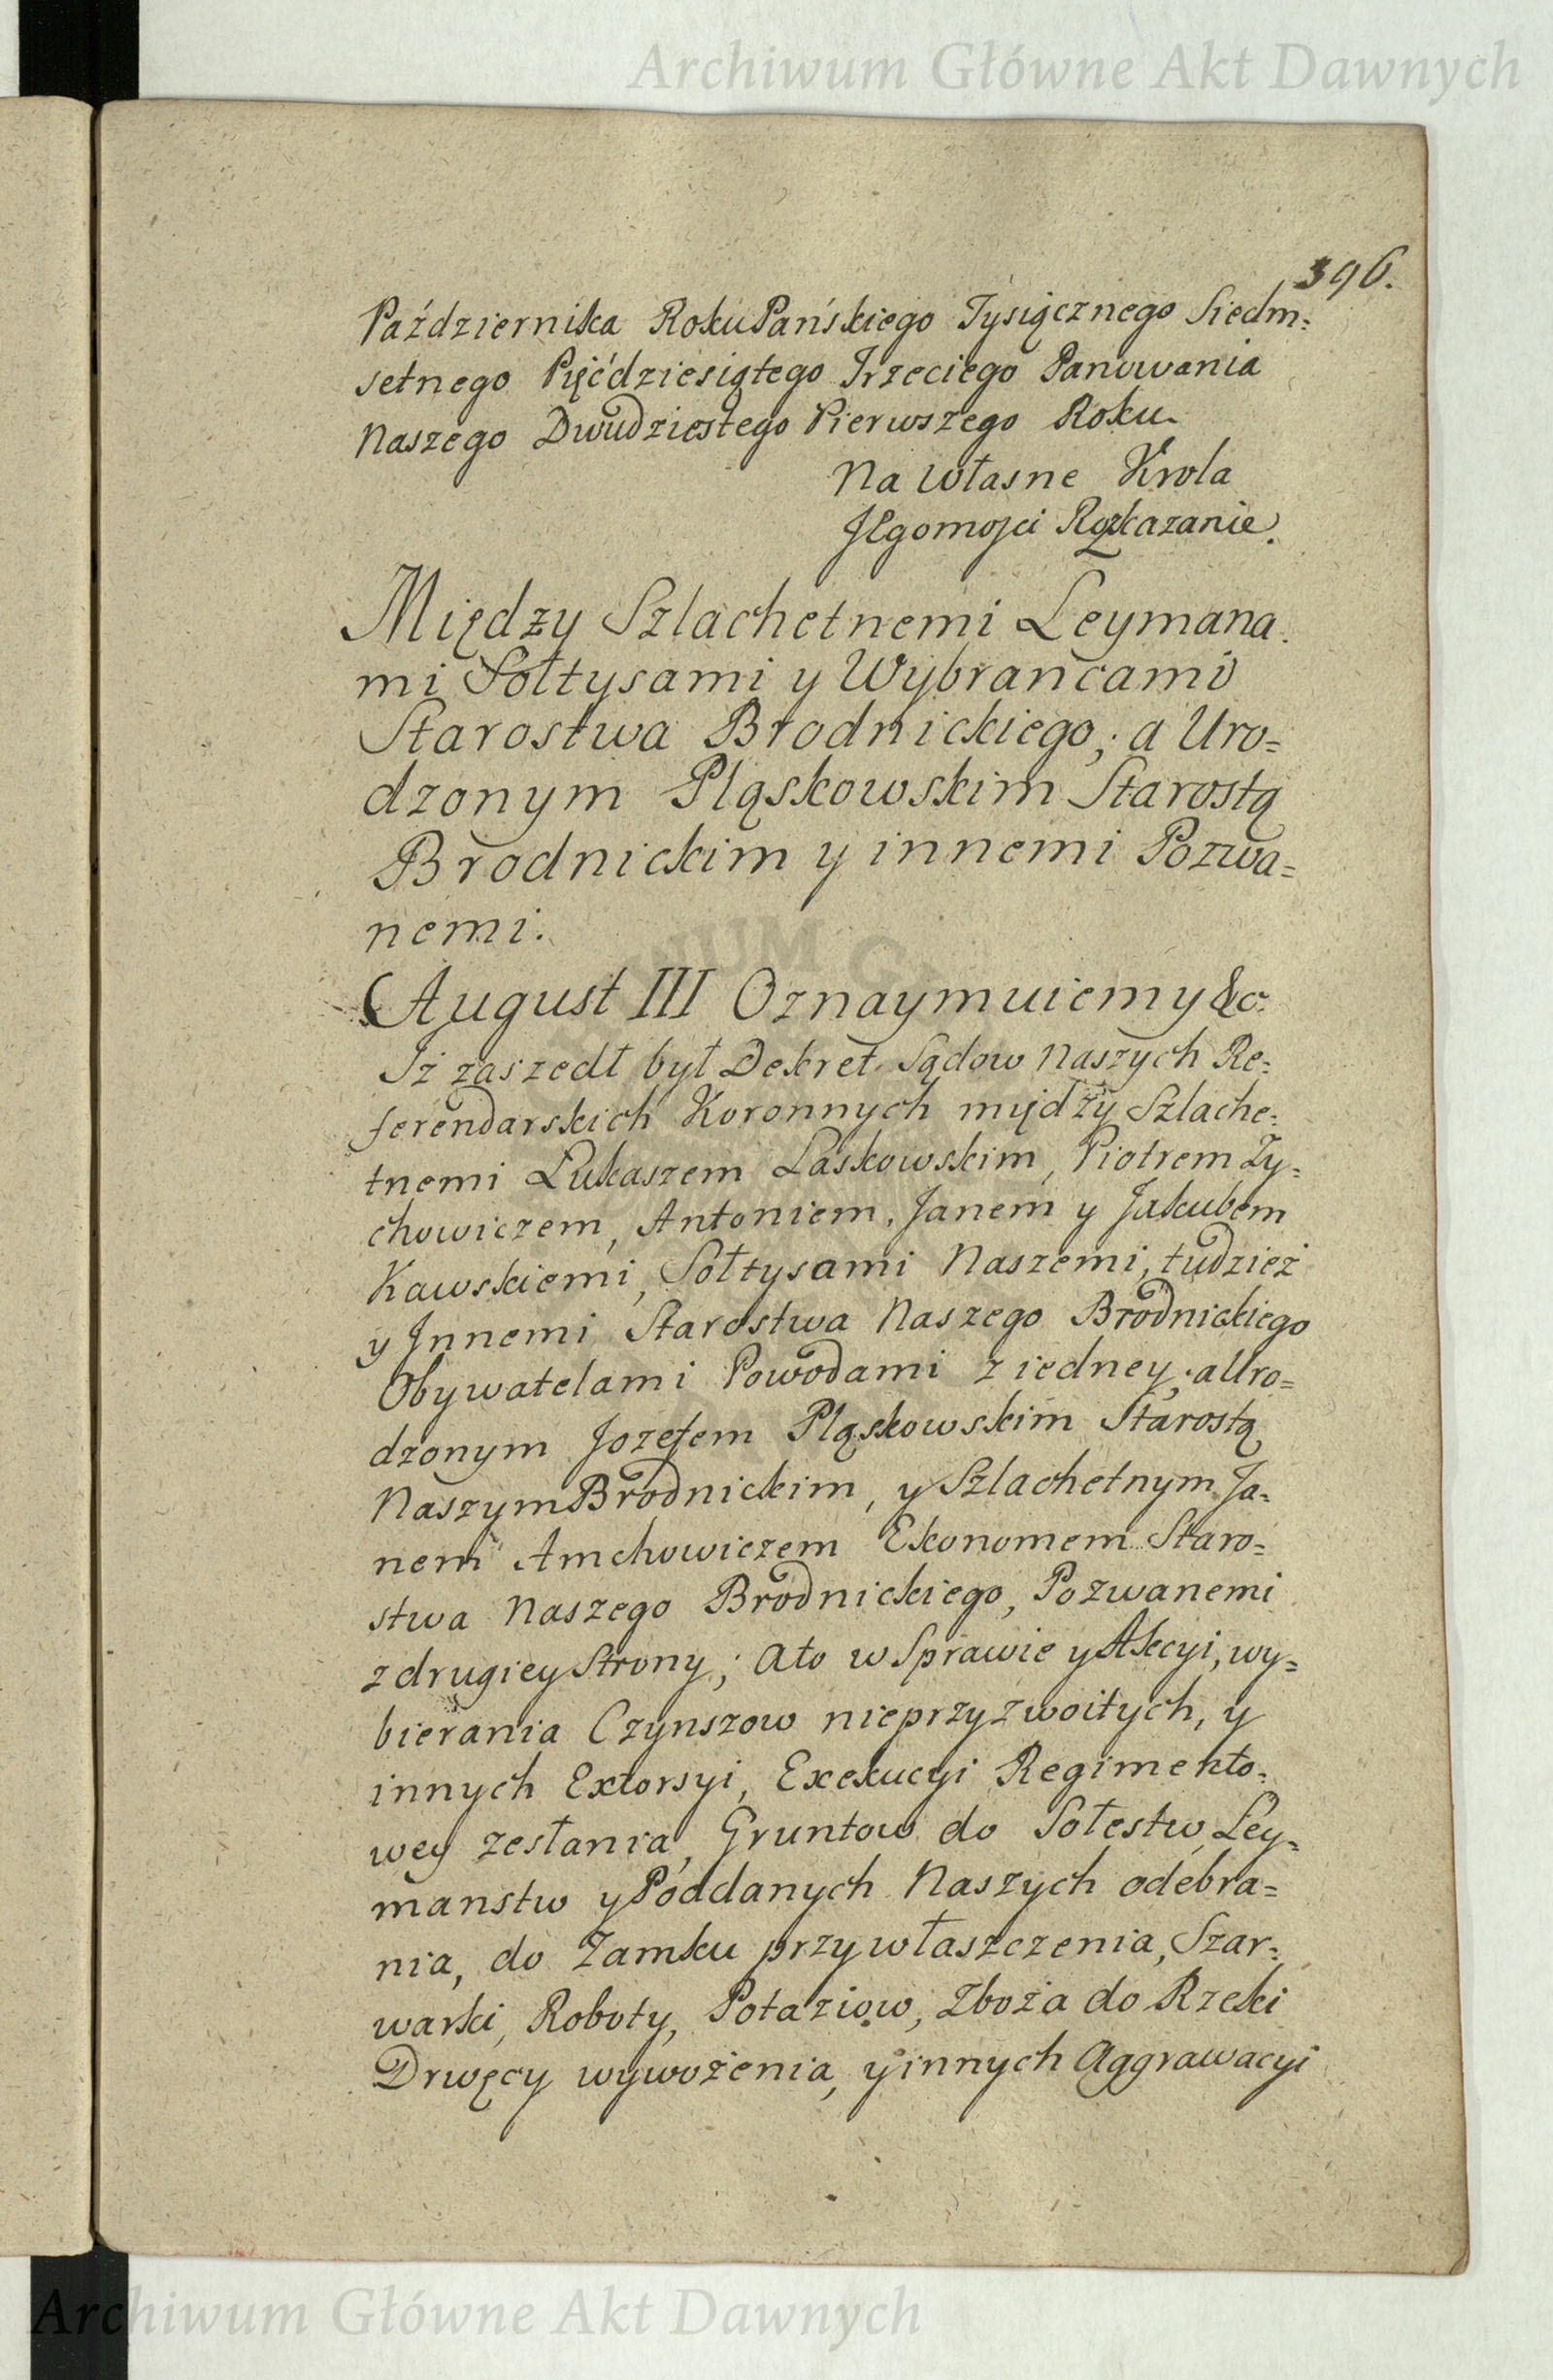 Archiwum Główne Akt Dawnych
396.
Października Roku Pańskiego Tysiącznego Siedm=
setnego Pięćdziesiątego Trzeciego Panowania
Naszego Dwudziestego Pierwszego Roku
Na własne Krola
JEgomości Rozkazanie.
Między Szlachetnemi Leymana=
mi Sołtysami y Wybrancami
Starostwa Brodnickiego; a Uro=
dzonym Pląskowskim Starostą
Brodnickim y innemi Pozwa=
nemi.
August III Oznaymuiemy &c:
Iż zaszedł był Dekret Sądow Naszych Re=
ferendarskich Koronnych między Szlache=
tnemi Łukaszem Laskowskim, Piotrem Zy=
chowiczem, Antoniem, Janem y Jakubem
Kawskiemi, Sołtysami Naszemi, tudzież
y Innemi Starostwa Naszego Brodnickiego
Obywatelami Powodami z iedney; a Uro=
dzonym Jozefem Pląskowskim Starostą
Naszym Brodnickim, y Szlachetnym Ja=
nem Amchowiczem Ekonomem Staro=
stwa Naszego Brodnickiego, Pozwanemi
z drugiey Strony; Ato w Sprawie y Akcyi, wy=
bierania Czynszow nieprzyzwoitych, y
innych Extorsyi, Exekucyi Regimento=
wey zesłania, Gruntow do Sołestw, Ley=
manstw y Poddanych Naszych odebra=
nia, do Zamku przywłaszczenia, Szar=
warki, Roboty, Potaziow, Zboża do Rzeki
Drwęcy wywożenia, y innych Aggrawacyi
Archiwum Główne Akt Dawnych